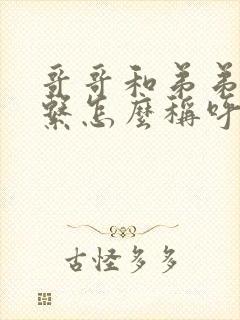 哥哥和弟弟
繫怎麼稱呼
古怪多多